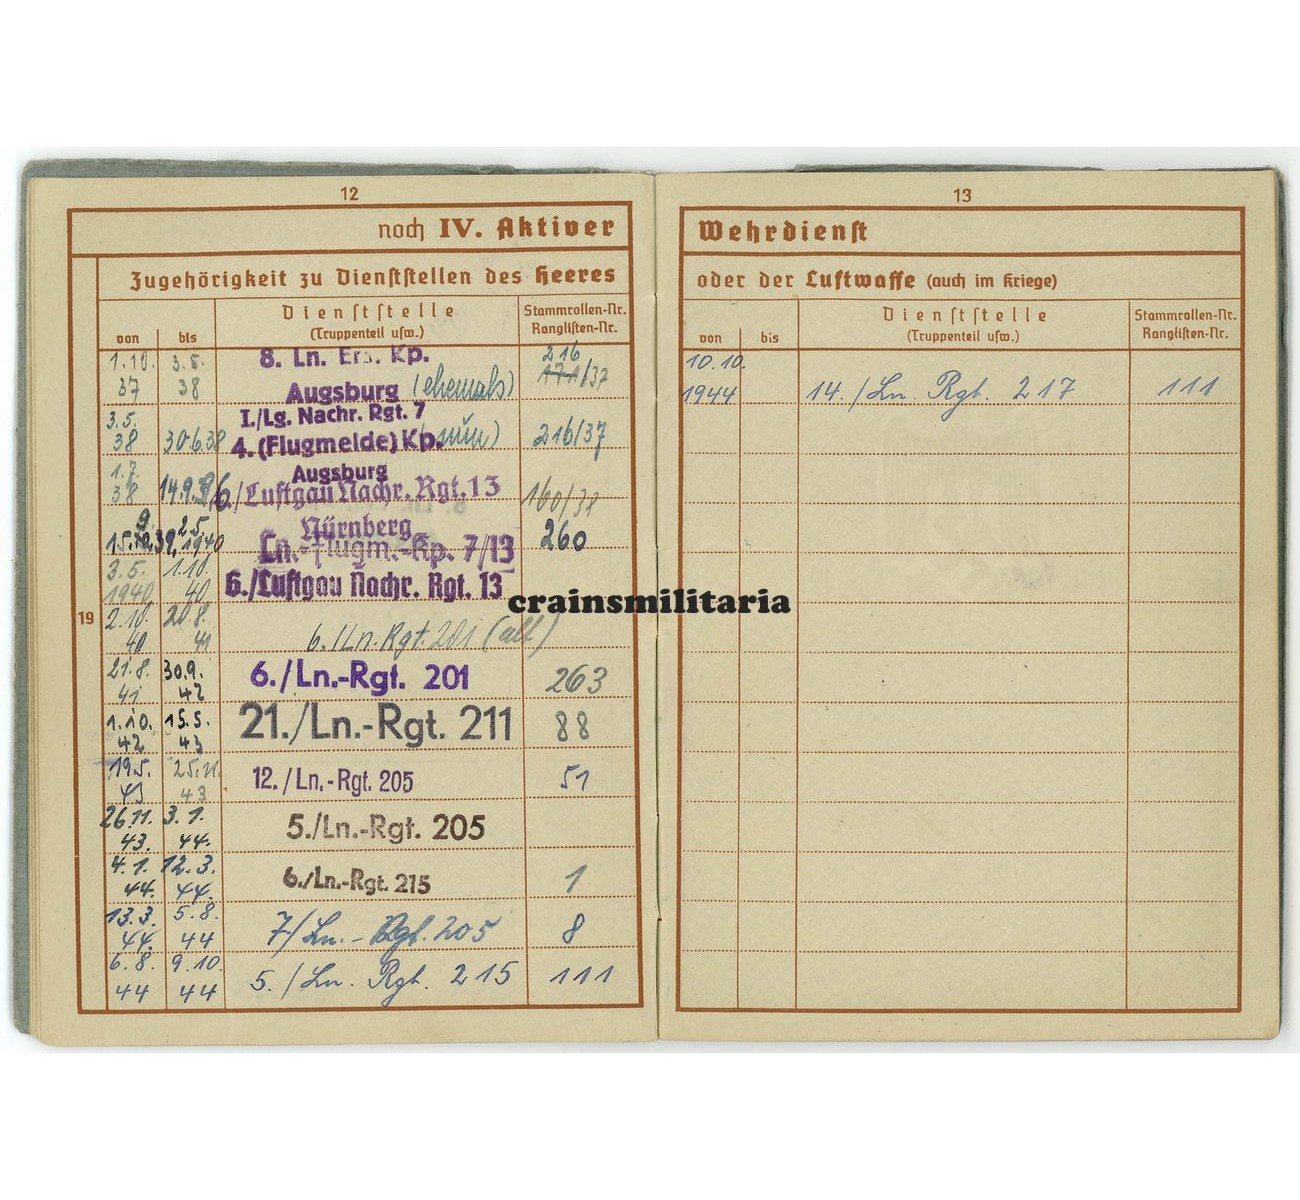 12
noch IV. Aktiver
Zugehörigkeit zu Dienststellen des Heeres
von
bis
Dienststelle
(Truppenteil usw.)
Stammrollen-Nr.
Ranglisten-Nr.
1.10. 37
3.5. 38
8. Ln. Ers. Kp.
Augsburg (ehemals)
216
171/37
3.5. 38
30.6.38
I./Lg. Nachr. Rgt. 7
4. (Flugmelde) Kp. (nun)
Augsburg
216/37
1.7. 38
14.9.
6./Luftgau Nachr. Rgt. 13
Nürnberg
160/38
15. 9. 39.
2.5. 1940
Ln.-Flugm.-Kp. 7/13
260
3.5. 1940
1.10. 40
6./Luftgau Nachr. Rgt. 13
19
2.10. 40
20.8. 41
6./Ln.-Rgt. 201 (alt)
21.8. 41
30.9. 42
6./Ln.-Rgt. 201
263
1.10. 42
15.5. 43
21./Ln.-Rgt. 211
88
19.5. 43
25.11. 43
12./Ln.-Rgt. 205
51
26.11. 43.
3.1. 44.
5./Ln.-Rgt. 205
4.1. 44.
12.3. 44.
6./Ln.-Rgt. 215
1
13.3. 44.
5.8. 44
7/Ln.-Rgt. 205
8
6.8. 44
9.10. 44
5./Ln. Rgt. 215
111
13
Wehrdienst
oder der Luftwaffe (auch im Kriege)
von
bis
Dienststelle
(Truppenteil usw.)
Stammrollen-Nr.
Ranglisten-Nr.
10.10. 1944
14./Ln. Rgt. 217
111
crainsmilitaria